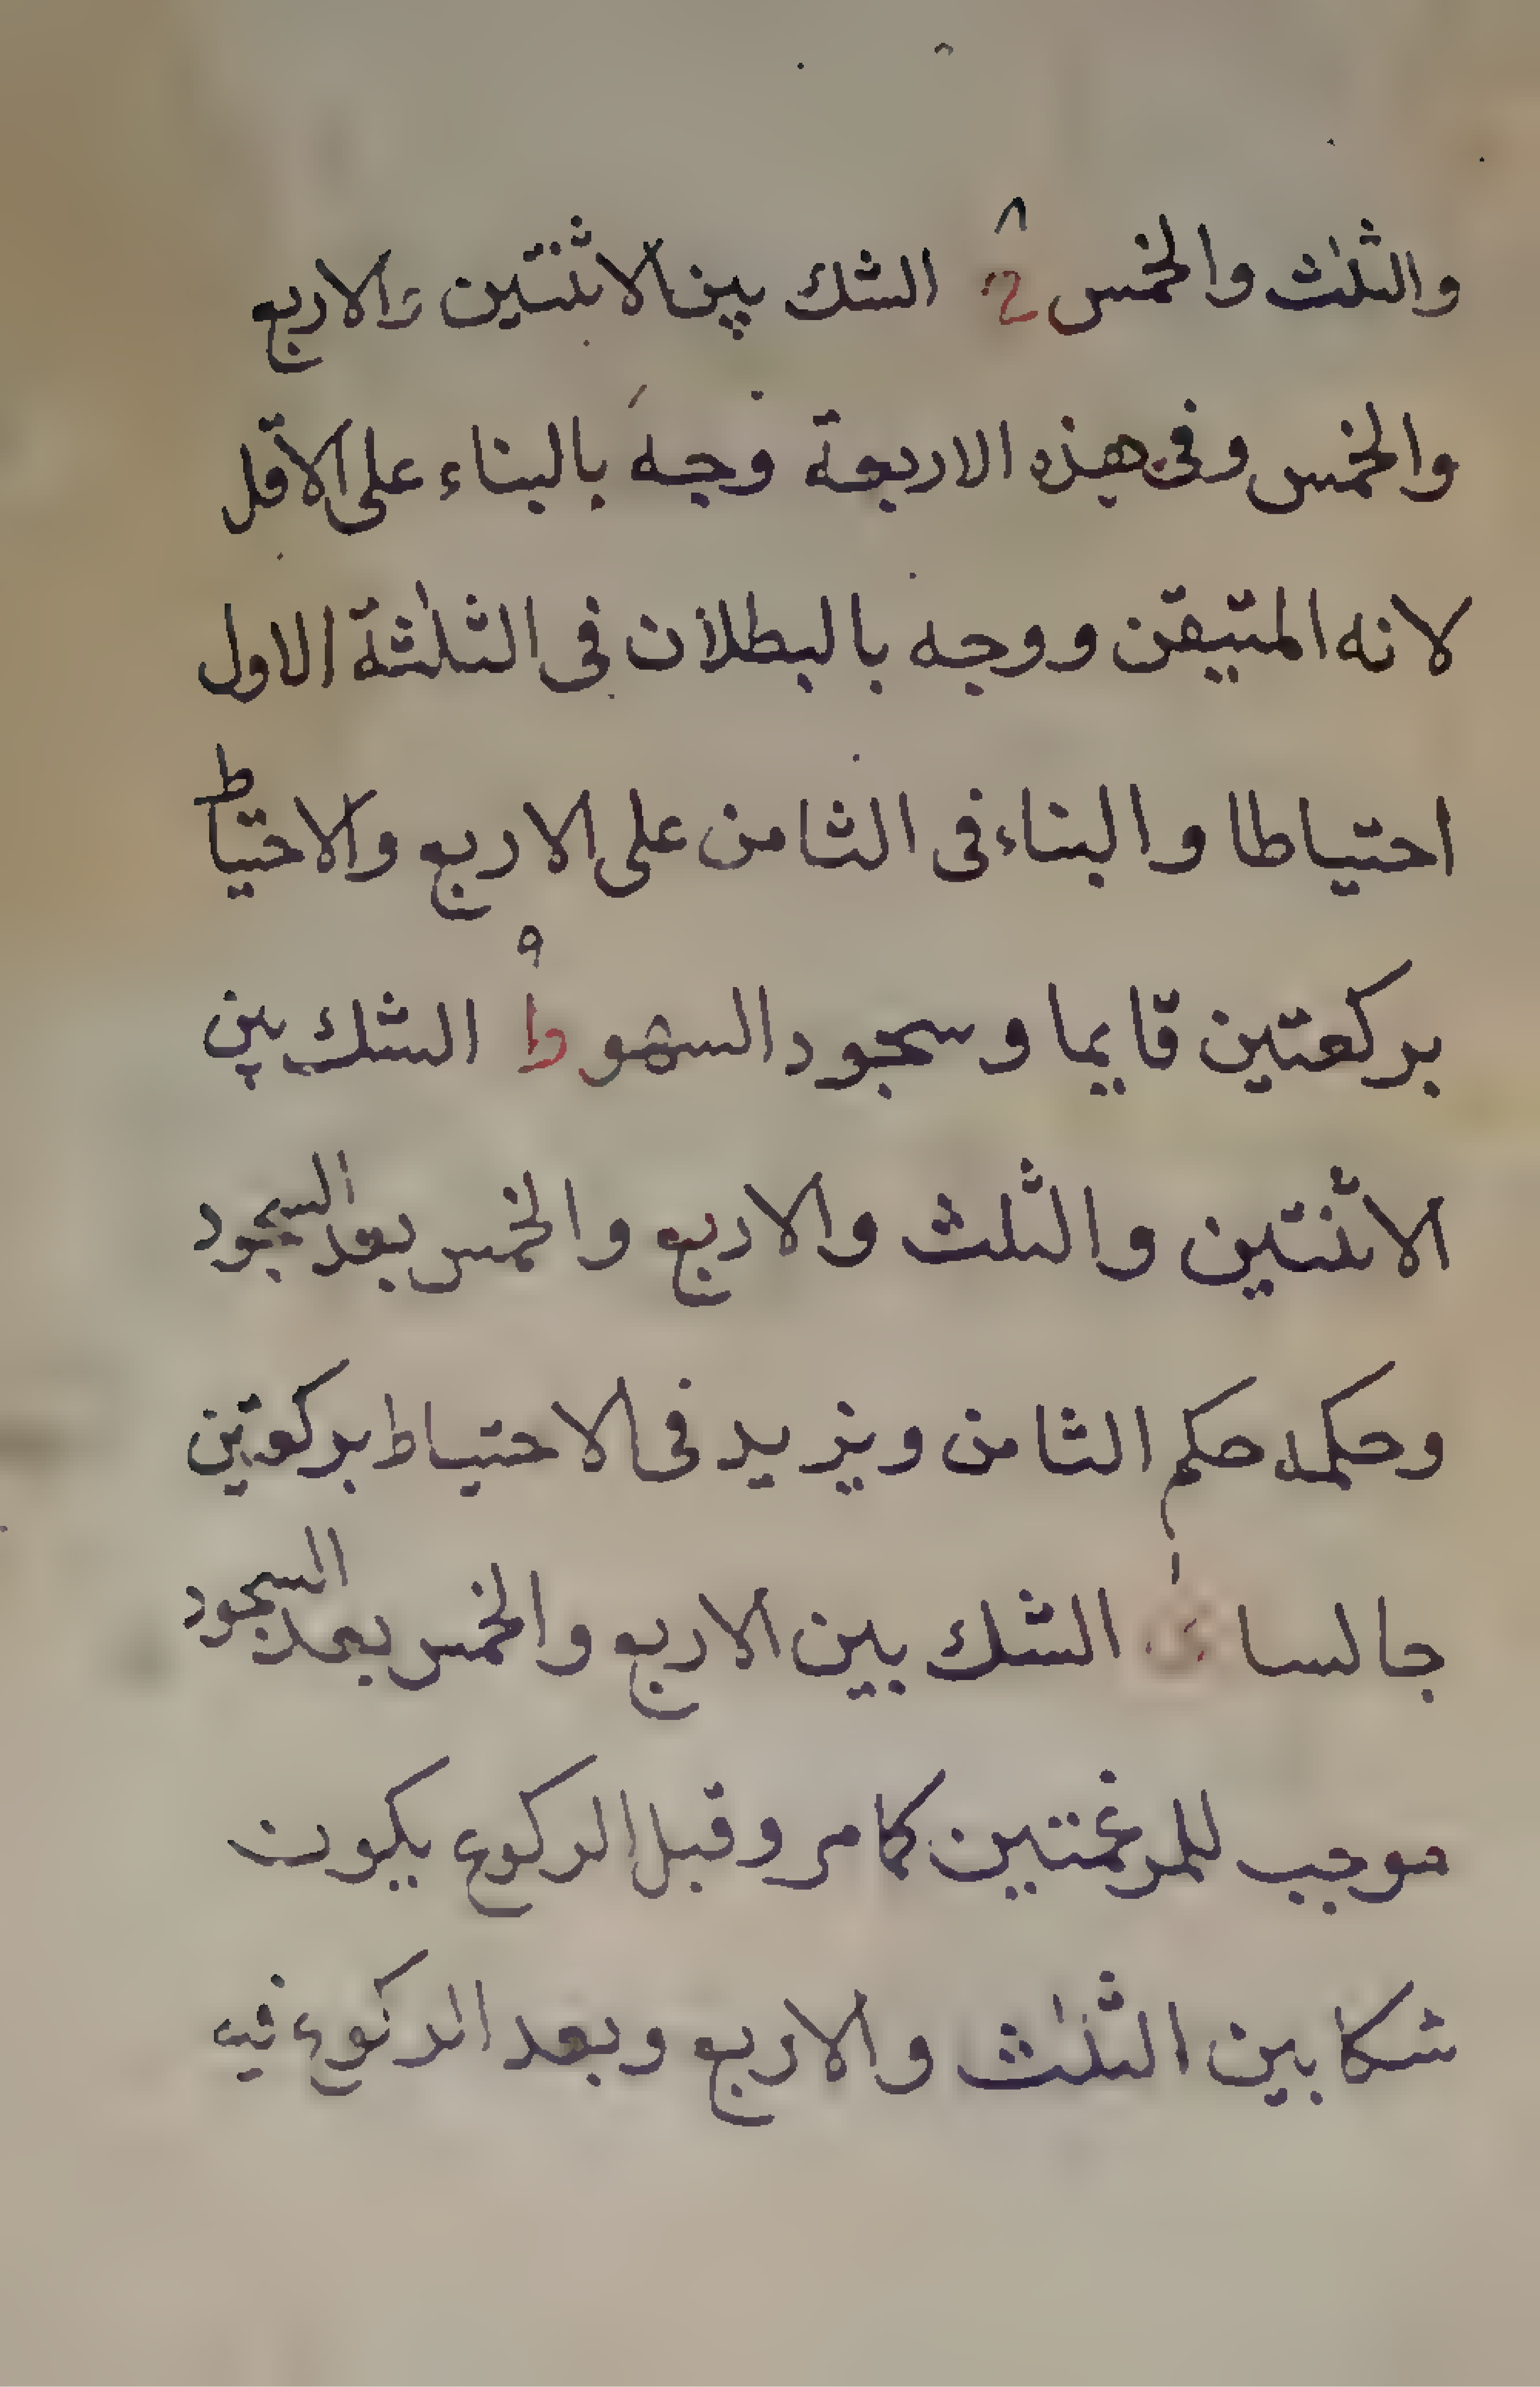 والثلث والخمس ح ٨ الشك بين الاثنتين والاربع
والخمس وفى هذه الاربعة وجه بالبناء على الاقل
لانه المتيقن ووجه بالبطلان فى الثلثة الاول
احتياطا والبناء فى الثامن على الاربع والاحتياط
بركعتين قايما وسجود السهو ٩ الشك بين
الاثنتين والثلث والاربع والخمس بعد السجود
وحكمه حكم الثامن ويزيد فى الاحتياط بركعتين
جالسا الشك بين الاربع والخمس بعد السجود
موجب للمرغمتين كما مر وقبل الركوع يكون
شكا بين الثلث والاربع وبعد الركوع فيه